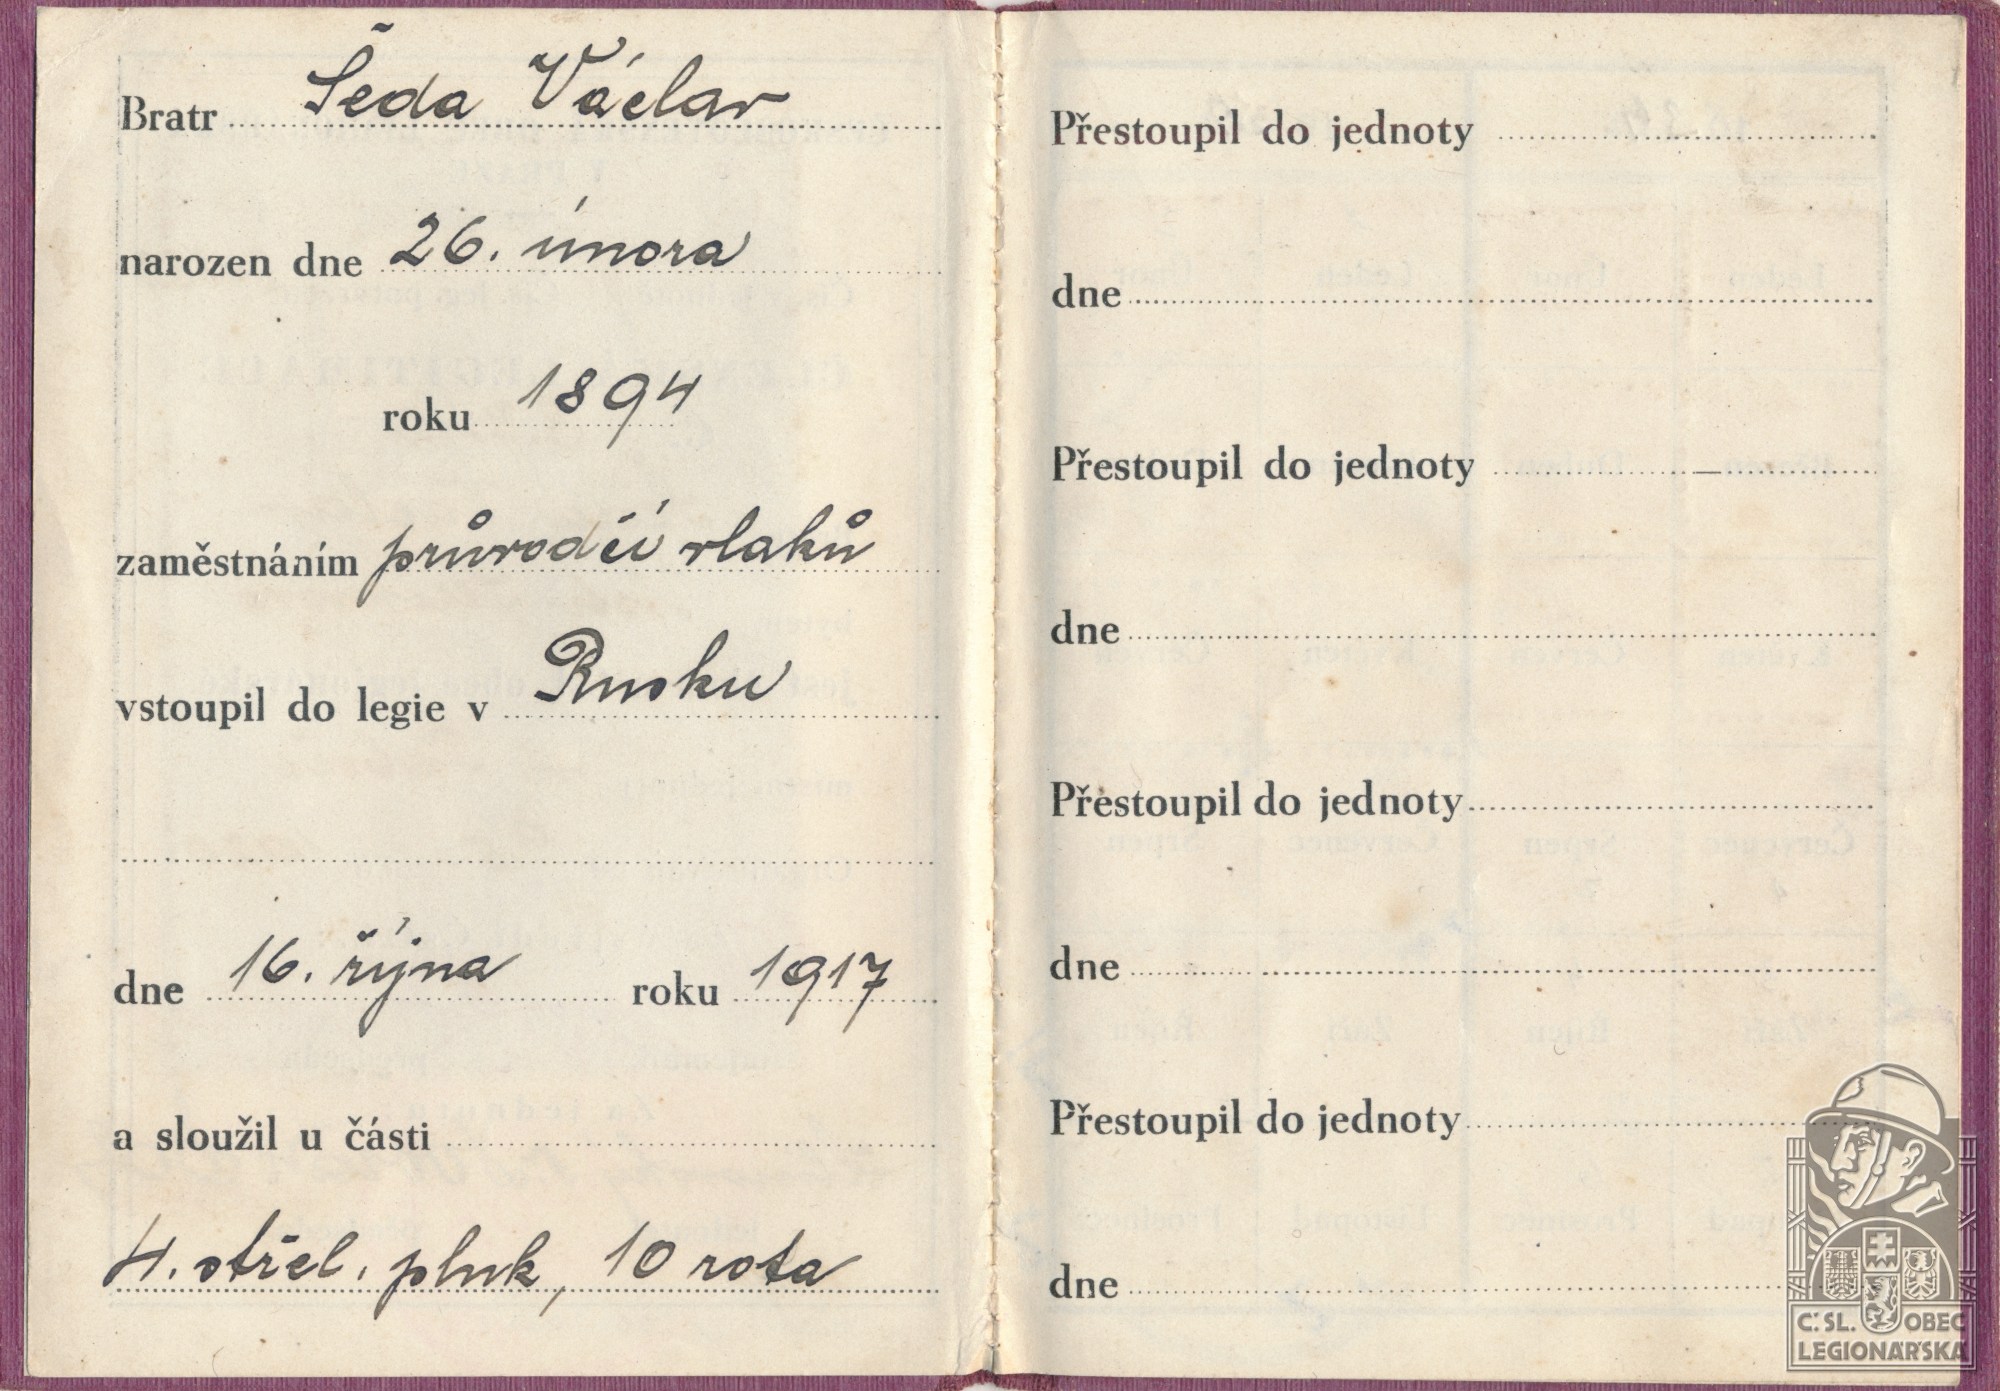 Bratr Šeda Václav
narozen dne 26. února
roku 1894
zaměstnáním průvodčí vlaků
vstoupil do legie v Rusku
dne 16. října roku 1917
a sloužil u části
4. střel. pluk, 10 rota
Přestoupil do jednoty
dne
Přestoupil do jednoty
dne
Přestoupil do jednoty
dne
Přestoupil do jednoty
dne
Č. SL. OBEC
LEGIONÁŘSKÁ